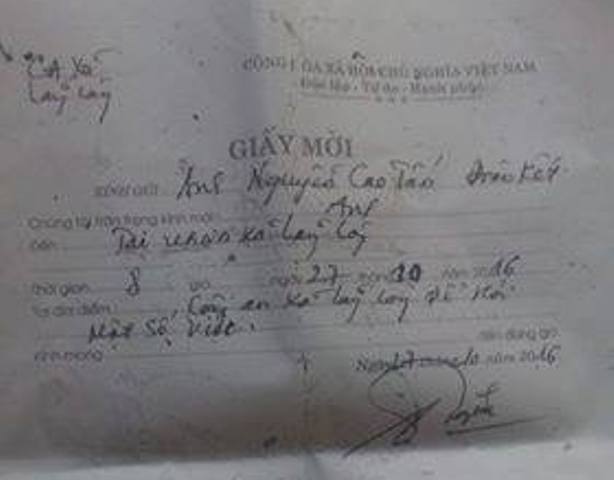 CA Xã
CỘNG HÒA XÃ HỘI CHỦ NGHĨA VIỆT NAM
Độc lập - Tự do - Hạnh phúc
GIẤY MỜI
KÍNH GỬI: Ông Nguyễn Cao Tấn Đoàn Kết
Chúng tôi trân trọng kính mời: Ông
đến: Tại xã
thời gian: 8 giờ, ngày 27 tháng 10 năm 2016
Tại địa điểm: Công an xã để hỏi
một số việc.
Kính mong đến đúng giờ
Ngày 27 tháng 10 năm 2016